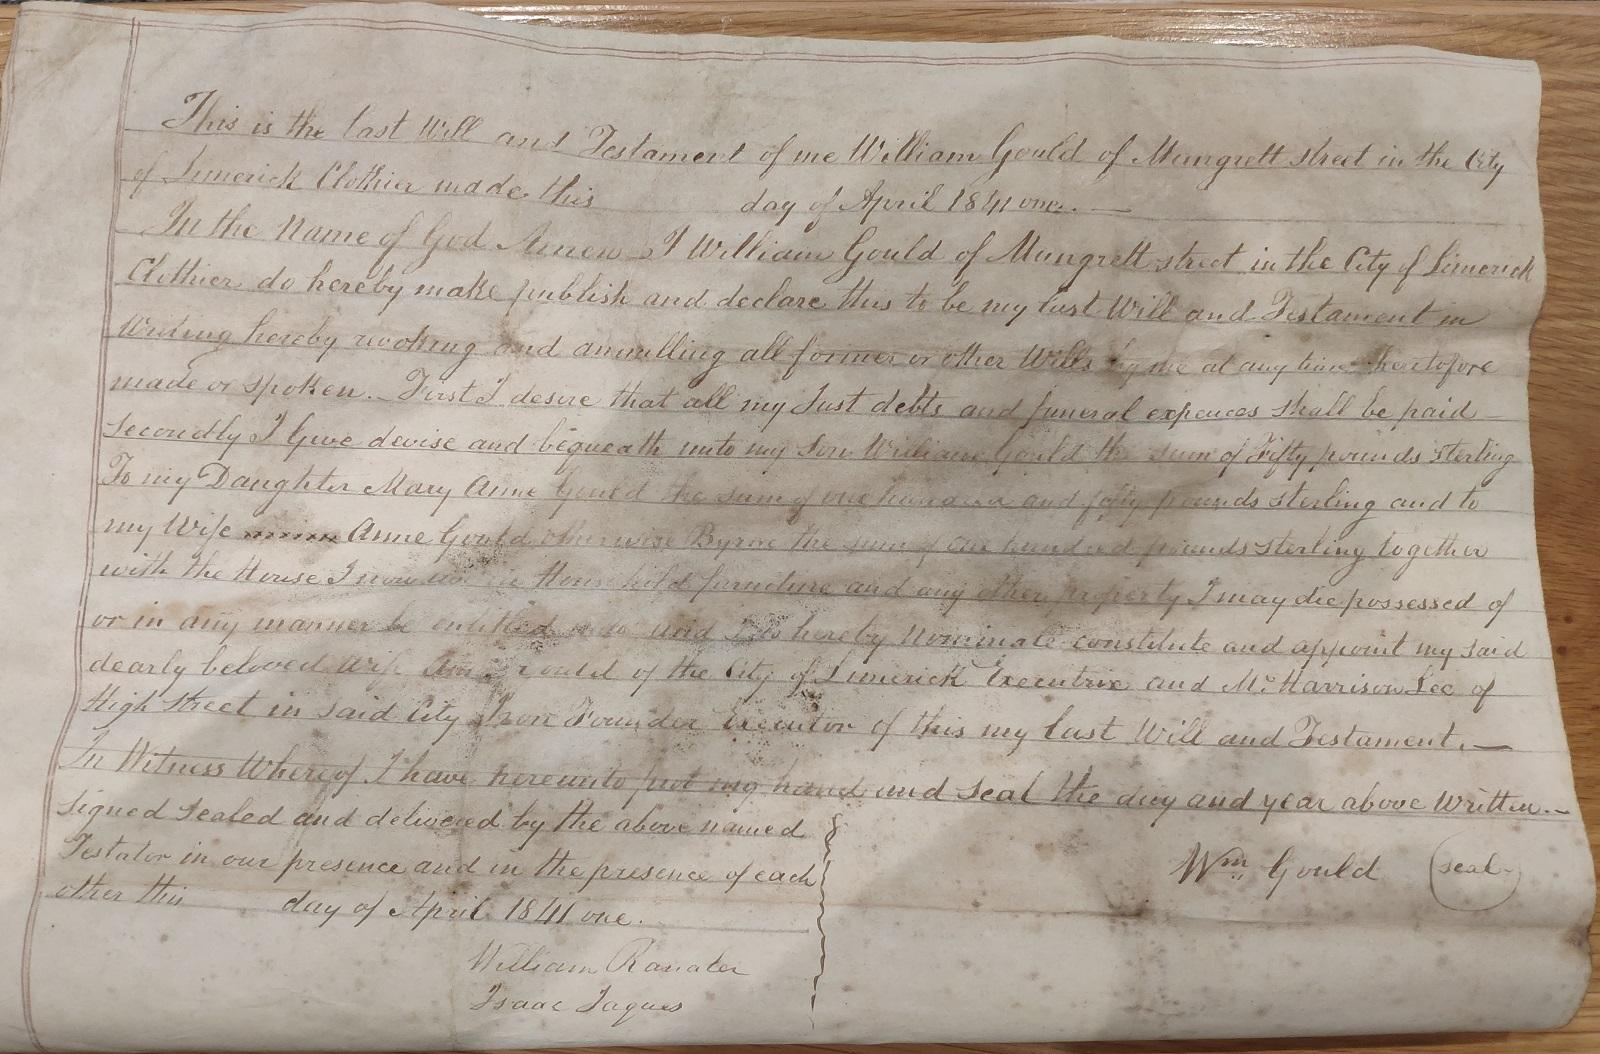 This is the last Will and Testament of me William Gould of Mungrett street in the City
of Limerick Clothier made this day of April 1841 one. —
In the Name of God Amen I William Gould of Mungrett street in the City of Limerick
Clothier do hereby make publish and declare this to be my last Will and Testament in
Writing hereby revoking and annulling all former or other Wills by me at any time heretofore
made or spoken. First I desire that all my Just debts and funeral expences shall be paid —
secondly I Give devise and bequeath unto my Son William Gould the sum of Fifty pounds sterling
To my Daughter Mary Anne Gould the sum of one hundred and fifty pounds sterling and to
my Wife Anne Gould otherwise Byrne the sum of one hundred pounds sterling together
with the House I now Household furniture and any other property I may die possessed of
or in any manner be entitled unto and I do hereby Nominate constitute and appoint my said
dearly beloved Wife Anne Gould of the City of Limerick Executrix and Mr. Harrison Lee of
High Street in said City Iron Founder Executor of this my last Will and Testament. —
In Witness Whereof I have hereunto put my hand and Seal the day and year above Written. —
Signed Sealed and delivered by the above named
Testator in our presence and in the presence of each
other this day of April 1841 one.
Wm Gould (seal)
William
Isaac Jaques